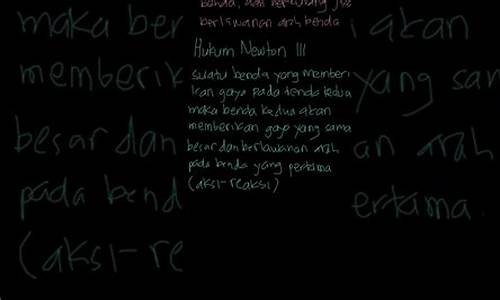 berlawanan arah benda
Hukum Newton III
suatu benda yang memberi
kan gaya pada benda kedua
maka benda kedua akan
memberikan gaya yang sama
besar dan berlawanan arah
pada benda yang pertama
(aksi-reaksi)
maka ber
memberik
besar dan
pada bend
(aksi-re
i akan
yang sam
an arah
ertama